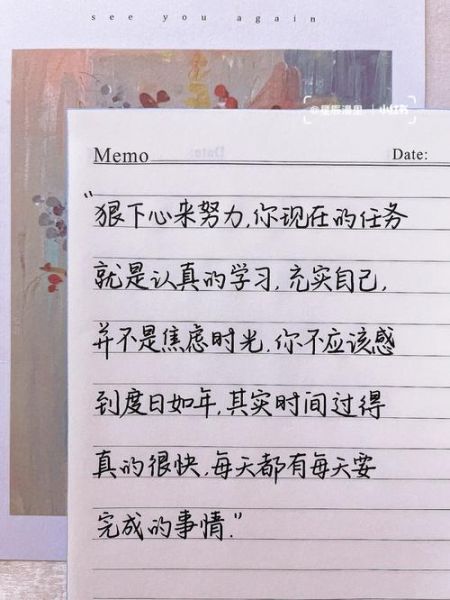 see you again
@星辰漫里 | 小红书
Memo
Date:
"狠下心来努力,你现在的任务
就是认真的学习,充实自己,
并不是焦虑时光,你不应该感
到度日如年,其实时间过得
真的很快,每天都有每天要
完成的事情."